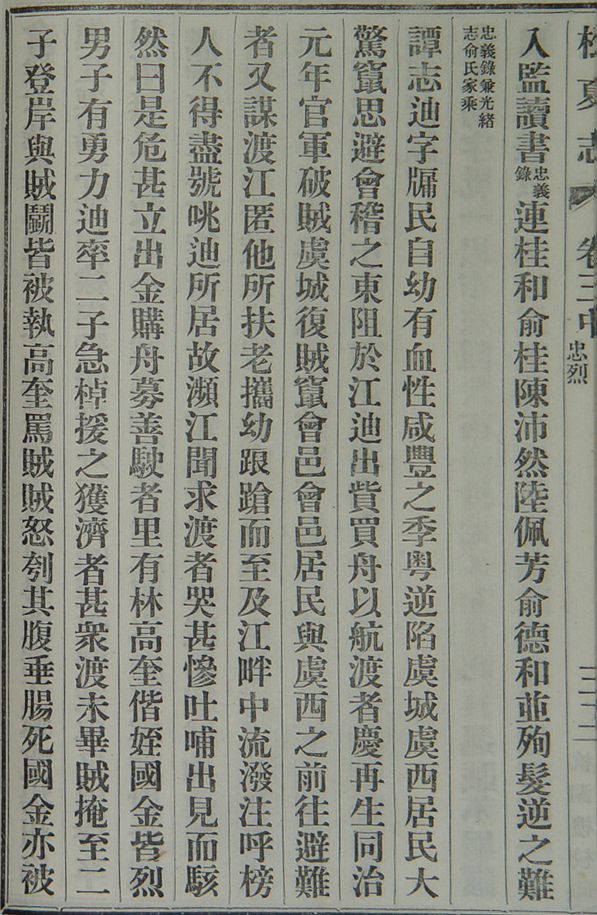 夏志 卷三中 忠烈
入監讀書忠義錄連桂和俞桂陳沛然陸佩芳俞德和並殉髮逆之難
忠義錄兼光緒志俞氏家乘
譚志迪字牖民自幼有血性咸豐之季粵逆陷虞城虞西居民大
驚竄思避會稽之東阻於江迪出貲買舟以航渡者慶再生同治
元年官軍破賊虞城復賊竄會邑會邑居民與虞西之前往避難
者又謀渡江匿他所扶老攜幼踉蹌而至及江畔中流潑注呼榜
人不得盡號咷迪所居故瀕江聞求渡者哭甚慘吐哺出見而駭
然曰是危甚立出金購舟募善駛者里有林高奎偕姪國金皆烈
男子有勇力迪率二子急棹援之獲濟者甚衆渡未畢賊掩至二
子登岸與賊鬭皆被執高奎罵賊賊怒刳其腹垂腸死國金亦被